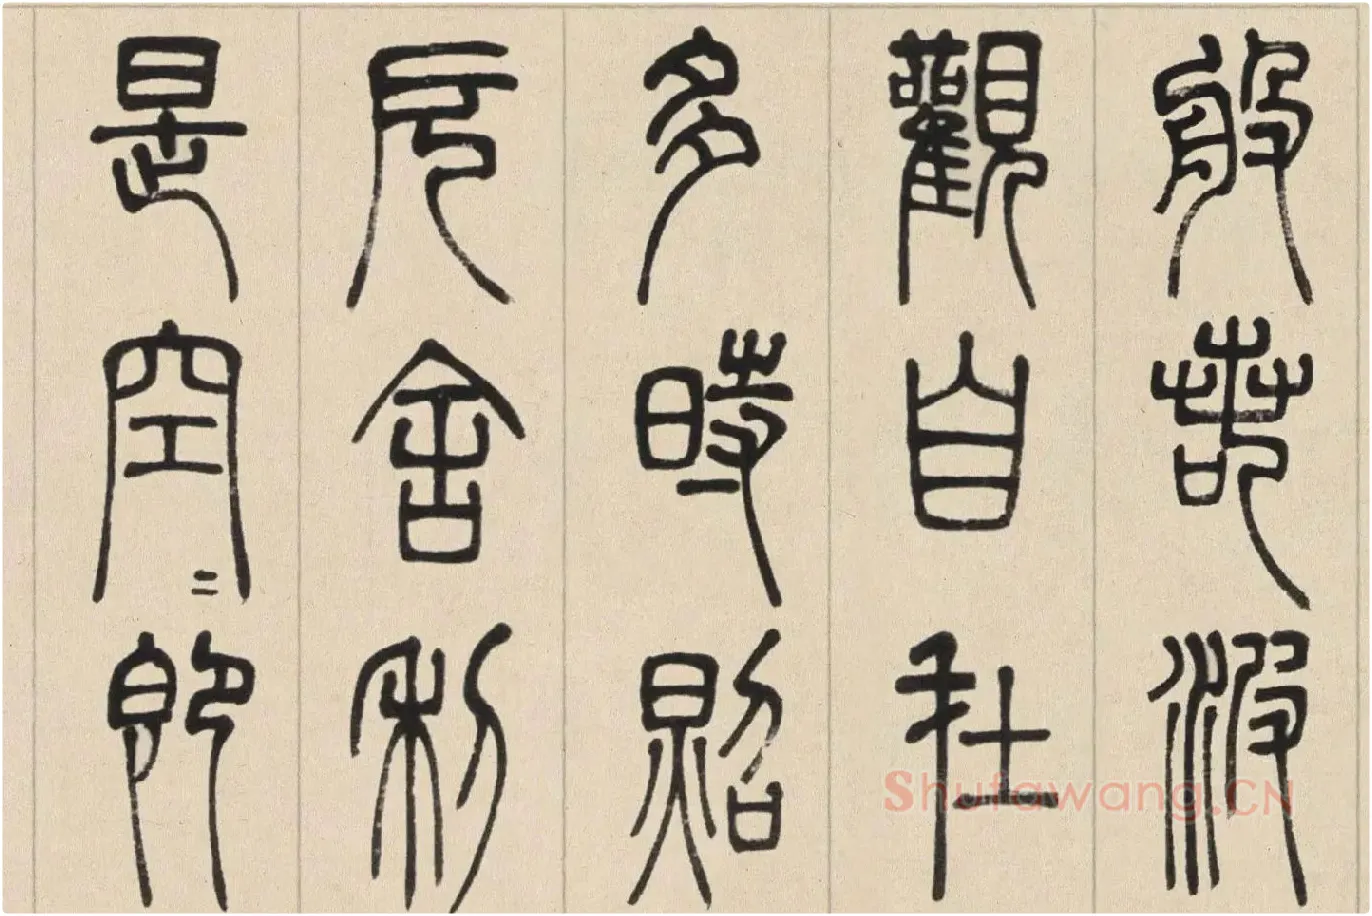 般若波
觀自在
多時照
厄舍利
是空〻即
Shufawang.CN